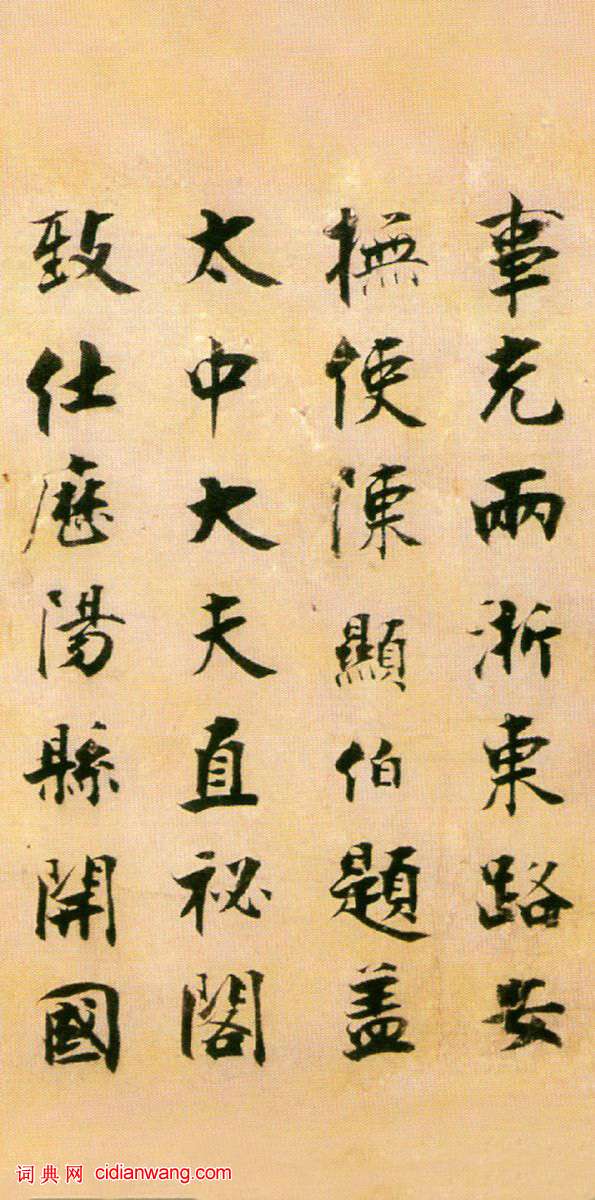 事充兩浙東路安
撫使陳顯伯題蓋
太中大夫直祕閣
致仕歷陽縣開國
词典网 cidianwang.com